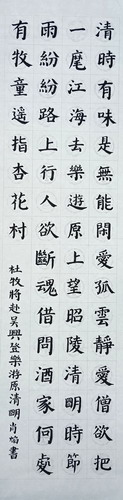 清時有味是無能閑愛孤雲靜愛僧欲把
一麾江海去樂遊原上望昭陵清明時節
雨紛紛路上行人欲斷魂借問酒家何處
有牧童遥指杏花村
杜牧將赴吴興登樂游原清明肖焰書